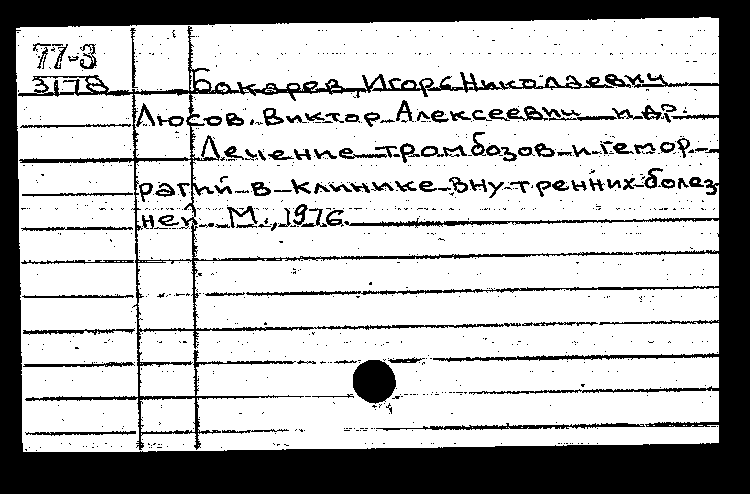 77-3
3178
Бокарев, Игорь Николаевич
Люсов, Виктор Алексеевич и др.
Лечение тромбозов и гемор-
рагий в клинике внутренних болез
ней. М., 1976.